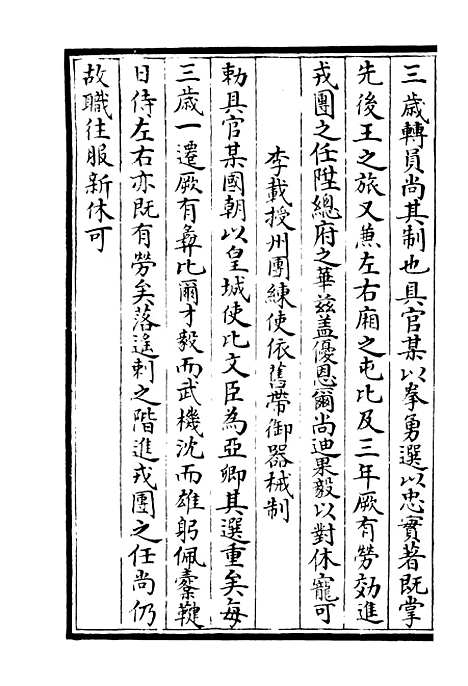 三歳轉員尚其制也具官某以拳勇選以忠實著既掌
先後王之旅又兼左右廂之屯比及三年厥有勞効進
戎團之任陞總府之華兹盖優恩爾尚迪果毅以對休寵可
李載授州團練使依舊帶御器械制
勅具官某國朝以皇城使比文臣為亞卿其選重矣每
三歳一遷厥有彝比爾才毅而武機沈而雄躬佩櫜鞬
日侍左右亦既有勞矣落遥刺之階進戎團之任尚仍
故職往服新休可